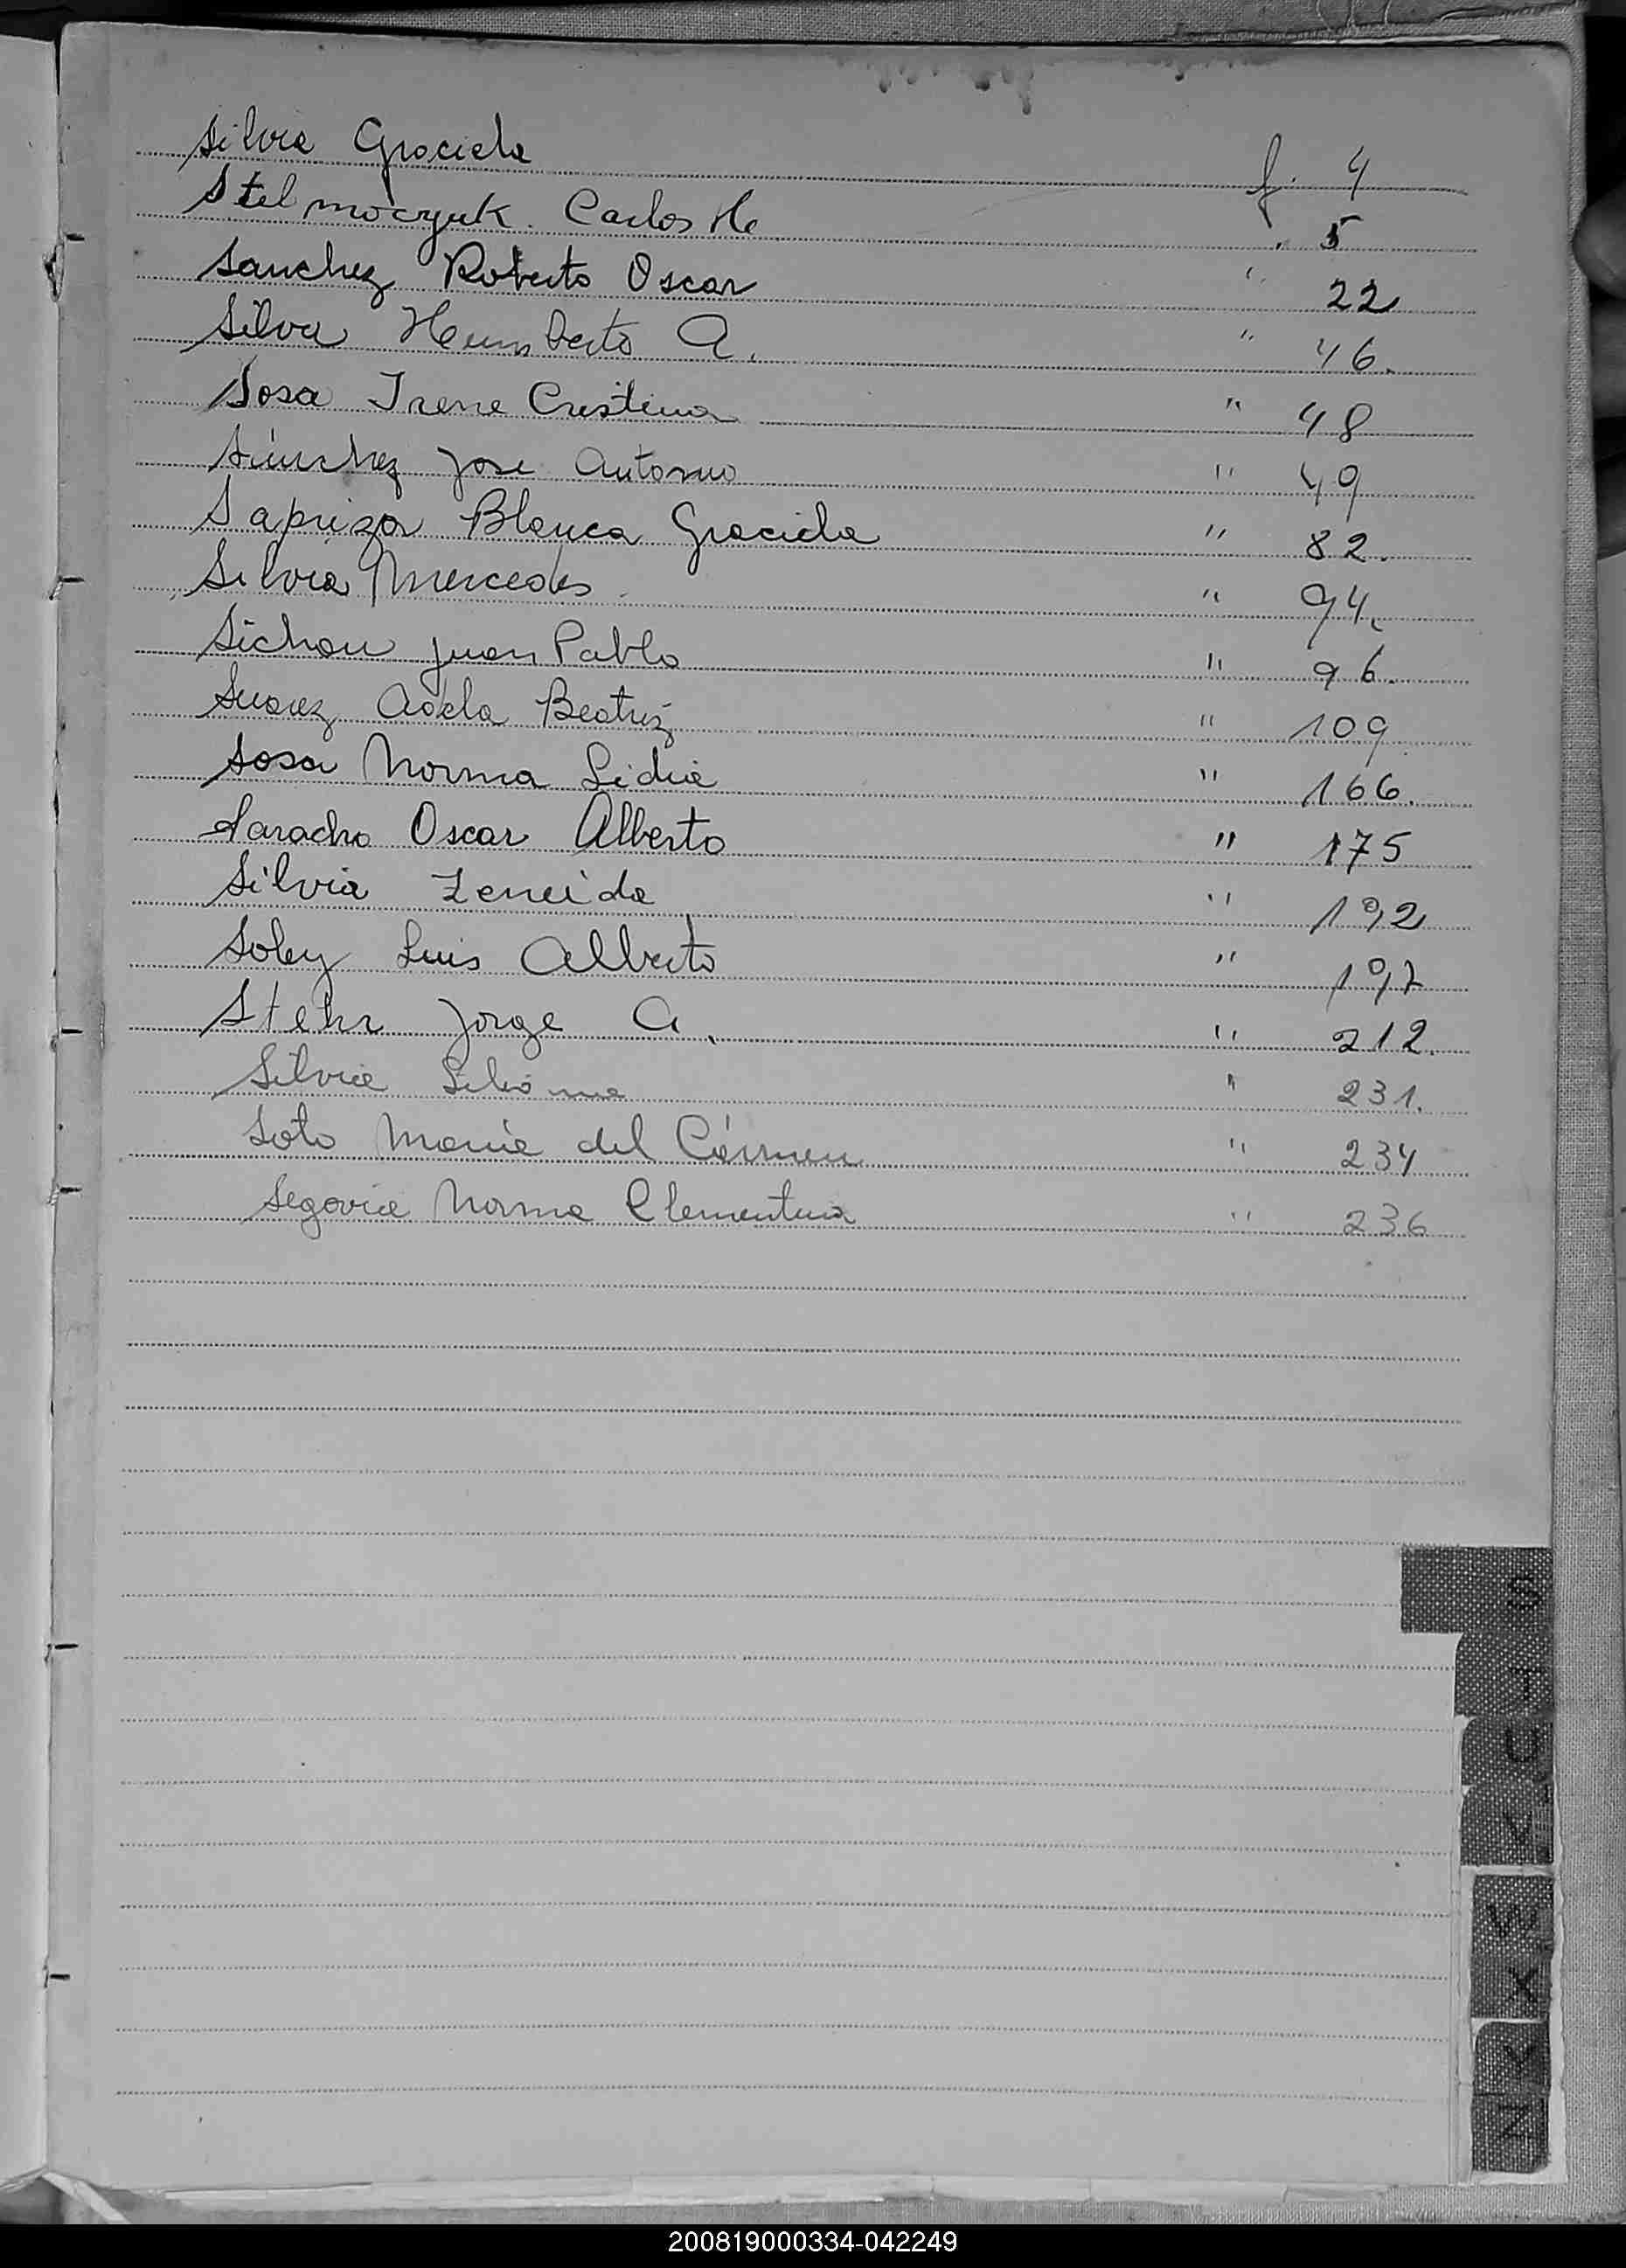 Silvia Graciela f. 4
Stelmaczuk. Carlos He " 5
Sanchez Roberto Oscar " 22
Silva Humberto A. " 46.
Sosa Irene Cristina " 48
Sánchez Jose Antonio " 49
Sapriza Blanca Graciela " 82.
Silvia Mercedes. " 94.
Sichau Juan Pablo " 96.
Suarez Adela Beatriz " 109
Sosa Norma Lidia " 166.
Saracho Oscar Alberto " 175
Silvia Zeneida " 192
Soley Luis Alberto " 197
Stehr Jorge A. " 212.
Silvia Liliana " 231.
Soto María del Cármen " 234
Segovia Norma Clementina " 236
S
T
U
V
W
X
Y
Z
200819000334-042249